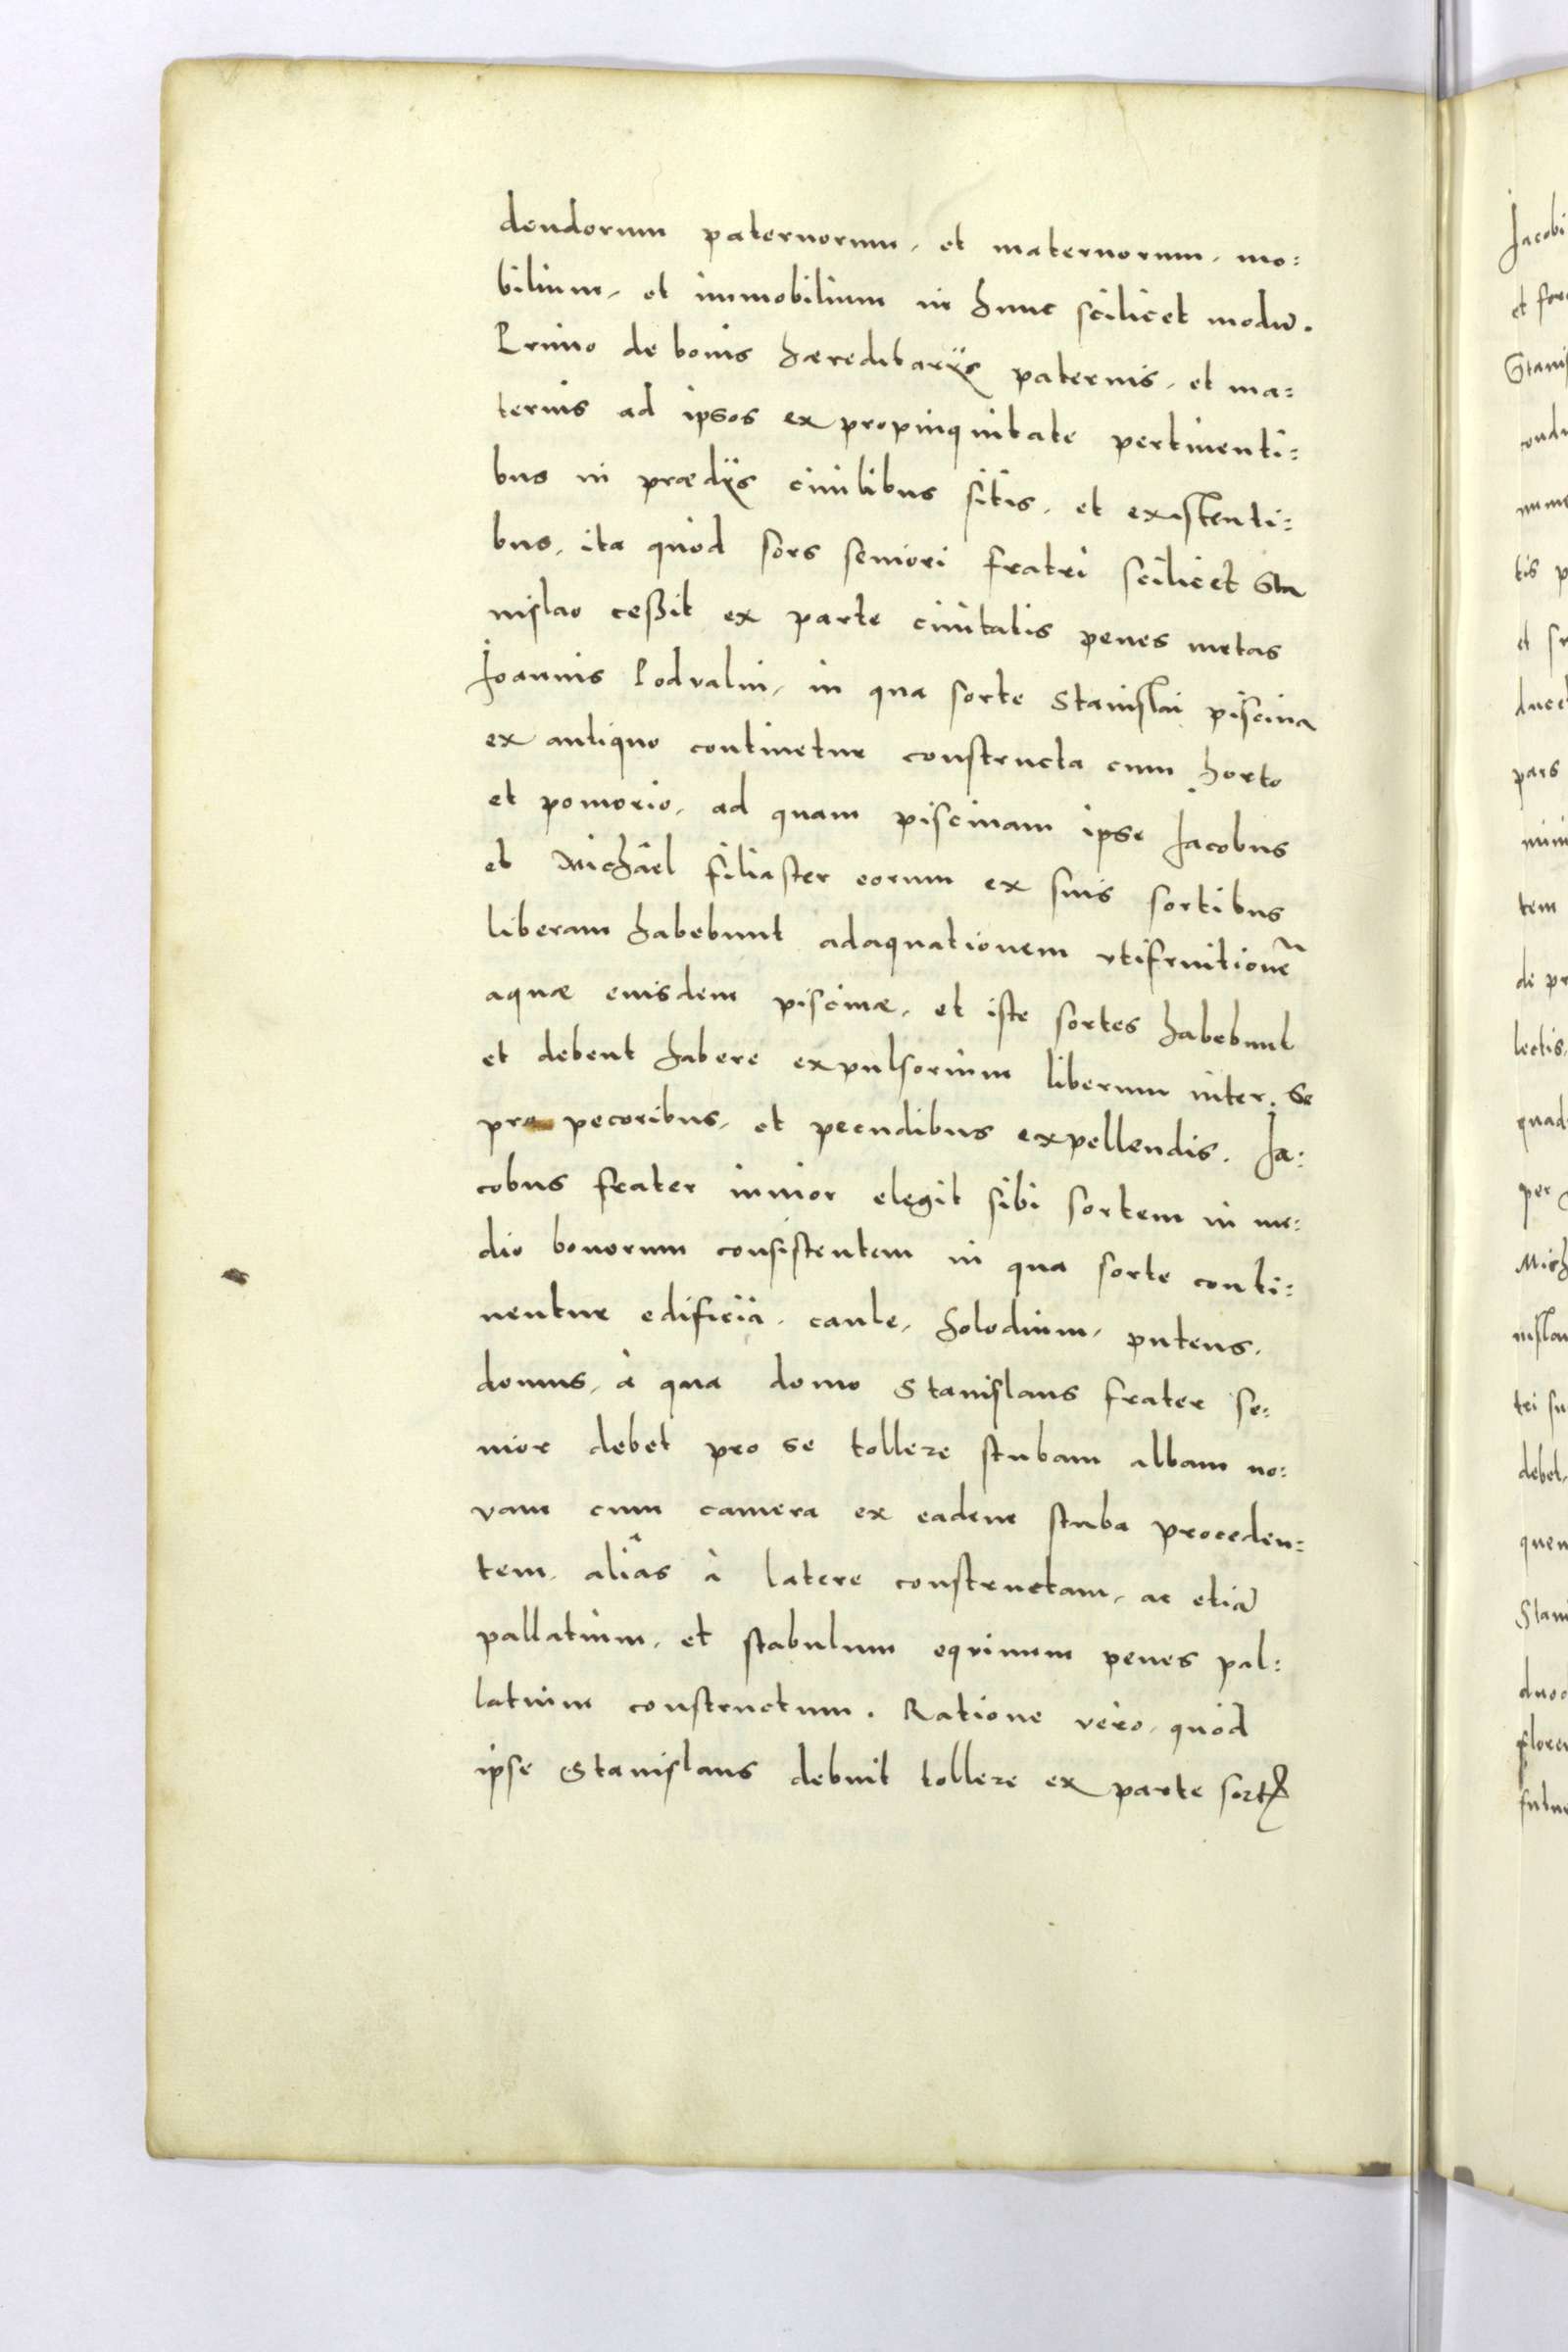 dendorum paternorum, et maternorum, mo:
bilium, et immobilium in hunc scilicet modũ.
Primo de bonis hæreditarijs paternis, et ma:
ternis ad ipsos ex propinquitate pertinenti:
bus in prædijs ciuilibus sitis, et existenti:
bus, ita quòd sors seniori fratri scilicet Sta
nislao ceßit ex parte ciuitatis penes metas
Joannis Podvalni, in qua sorte Stanislai piscina
ex antiquo continetur constructa cum horto
et pomorio, ad quam piscinam ipse Jacobus
et Michäel filiaster eorum ex suis sortibus
liberam habebunt adaquationem vtifruitionẽ
aquæ eiusdem piscinæ, et iste sortes habebunt
et debent habere expulsorium liberum inter se
pro pecoribus, et pecudibus expellendis. Ja:
cobus frater iunior elegit sibi sortem in me:
dio bonorum consistentem in qua sorte conti:
nentur edificia, caule, holodium, puteus,
domus, à qua domo Stanislaus frater se:
nior debet pro se tollere stubam albam no:
vam cum camera ex eadem stuba proceden:
tem, aliâs à latere constructam, ac etiã
pallatium, et stabulum equinum penes pal:
latium constructum. Ratione vero, quòd
ipse Stanislaus debuit tollere ex parte sortꝭ
Jacobi
Stani
tis
pars
tem
lectis,
per
Mich
debet,